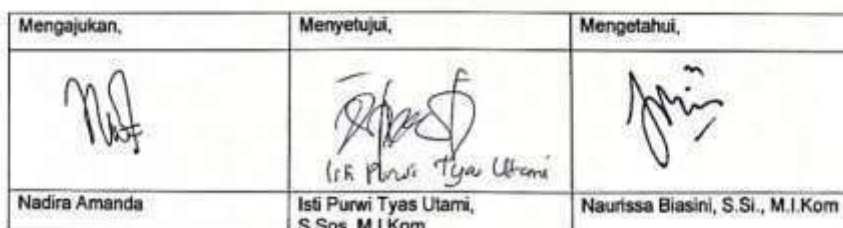 Mengajukan,
Menyetujui,
Mengetahui,
Isti Purwi Tyas Utami
Nadira Amanda
Isti Purwi Tyas Utami,
S.Sos, M.I.Kom
Naurissa Biasini, S.Si., M.I.Kom